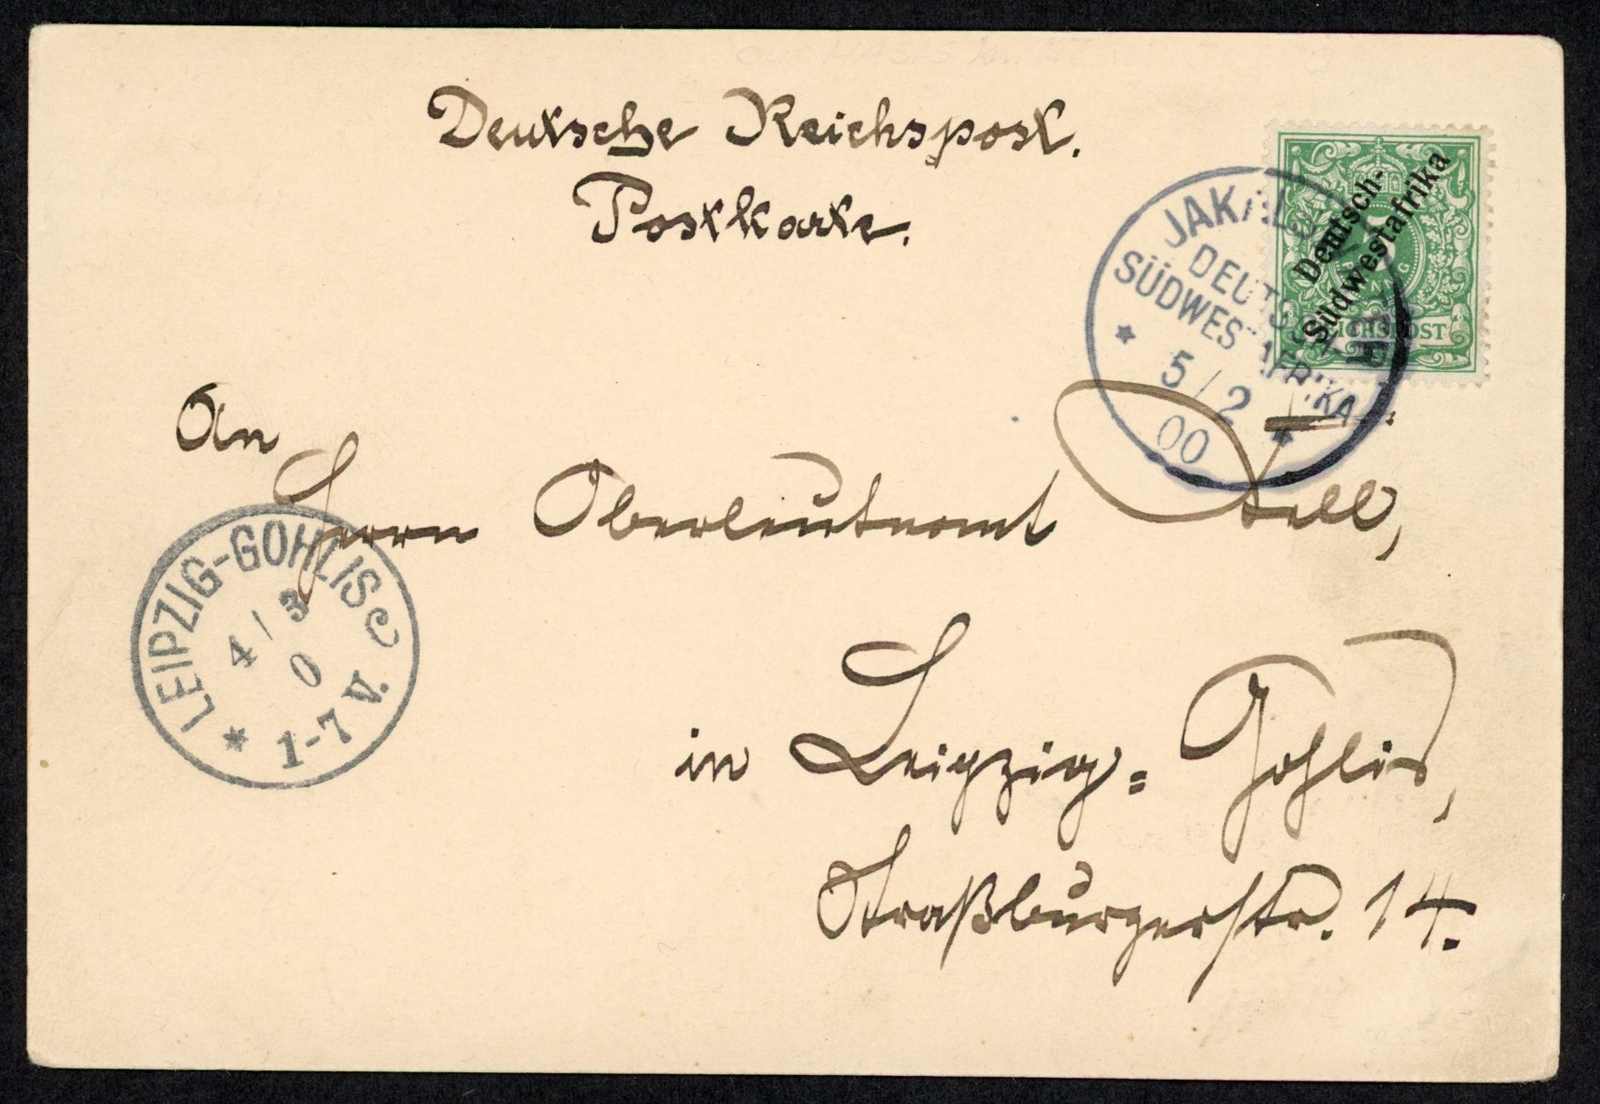 Deutsche Reichspost.
Postkarte.
Deutsch-
Südwestafrika
REICHSPOST
DEUTSCH
SÜDWESTAFRIKA
5/2
00
An
Herrn Oberleutnant
in Leipzig=Gohlis,
Straßburgerstr. 14.
LEIPZIG-GOHLIS c
4/3
0
1-7 V.